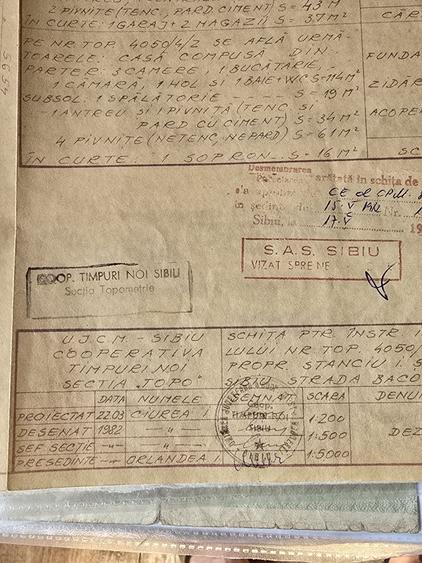 2 PIVNIȚE (TENC, PARD. CIMENT) S = 43 M²
ÎN CURTE: 1 GARAJ + 2 MAGAZII S = 37 M²
CĂR
PE NR. TOP. 4050/4/2 SE AFLĂ URMĂ-
TOARELE: CASĂ COMPUSĂ DIN
PARTER: 3 CAMERE, 1 BUCĂTĂRIE,
FUNDA
1 CĂMARĂ, 1 HOL SI 1 BAIE+WC S=114 M²
SUBSOL: 1 SPĂLĂTORIE S = 19 M²
ZIDĂR
1 ANTREU ȘI 1 PIVNIȚĂ (TENC. ȘI
PARD CU CIMENT) S = 34 M²
ACOPE
4 PIVNIȚE (NETENC, NEPARD) S = 61 M²
ÎN CURTE: 1 SOPRON S = 16 M²
SC
5654
Desmembrarea
Parcelarea arătată în schița de
CE al CPM
în ședința de 15.V 1982 Nr.
Sibiu, la 17.V 19
S.A.S. SIBIU
VIZAT SPRE NE
COOP. TIMPURI NOI SIBIU
Secția Topometrie
U.J.C.M. - SIBIU
COOPERATIVA
TIMPURI NOI
SECTIA "TOPO"
SCHIȚA PTR. ÎNSTR
LULUI NR TOP. 4050/
PROPR. STANCIU I.
SIBIU STRADA BACO
DATA NUMELE SEMNAT. SCARA DENU
PROIECTAT 22.03 CIUREA I. 1:200
DESENAT 1982 — " — 1:500 DEZ
SEF SECTIE — " — — " —
PRESEDINTE — " — ORLANDEA I. 1:5000
TIMPURI NOI
SIBIU